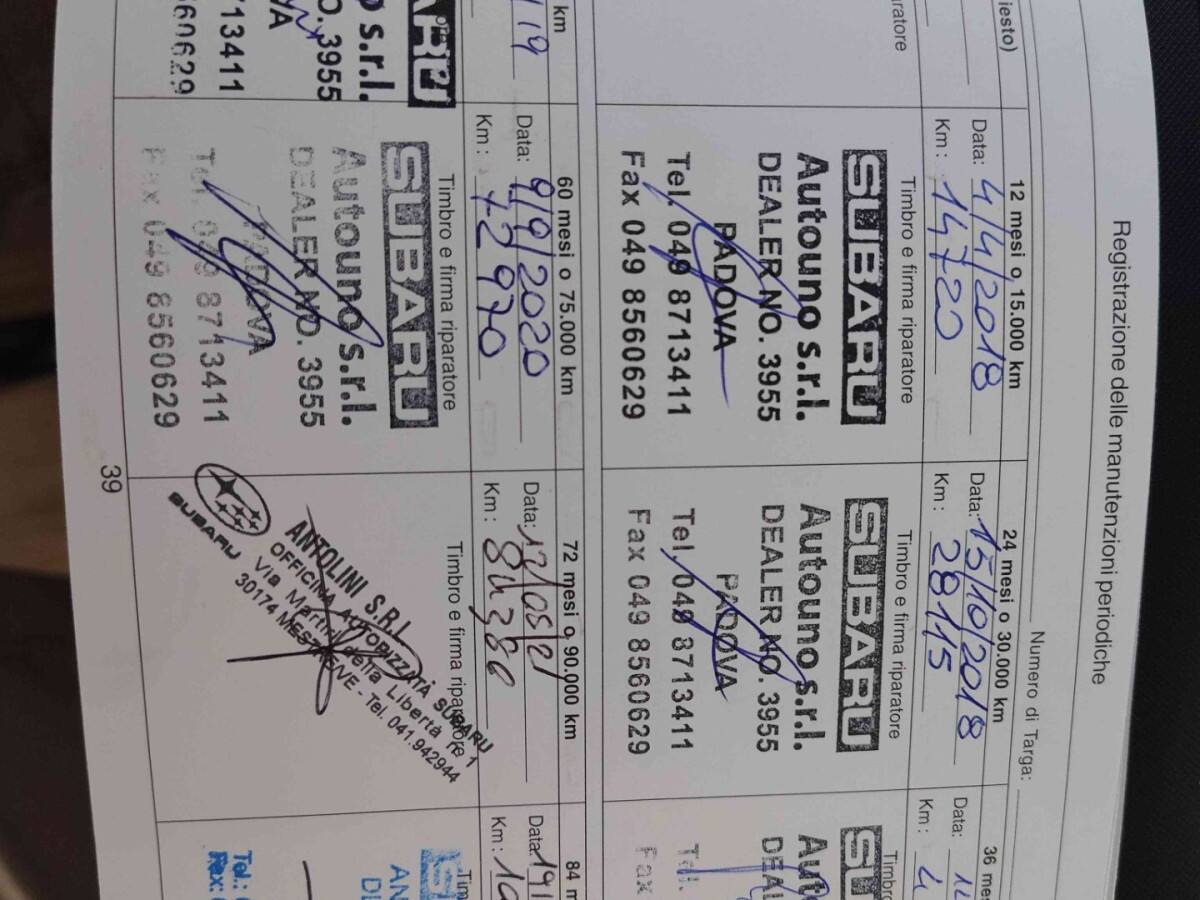 Registrazione delle manutenzioni periodiche
Numero di Targa:
iesto)
aratore
12 mesi o 15.000 km
Data: 4/4/2018
Km: 14720
Timbro e firma riparatore
SUBARU
Autouno s.r.l.
DEALER NO. 3955
PADOVA
Tel. 049 8713411
Fax 049 8560629
24 mesi o 30.000 km
Data: 15/10/2018
Km: 28115
Timbro e firma riparatore
SUBARU
Autouno s.r.l.
DEALER NO. 3955
PADOVA
Tel. 049 8713411
Fax 049 8560629
36 mes
Data: 14
Km: 4
Timbro
SU
Auto
DEAL
Tel.
Fax
km
119
ARU
o s.r.l.
O. 3955
VA
713411
560629
60 mesi o 75.000 km
Data: 9/9/2020
Km: 72970
Timbro e firma riparatore
SUBARU
Autouno s.r.l.
DEALER NO. 3955
PADOVA
Tel. 049 8713411
Fax 049 8560629
72 mesi o 90.000 km
Data: 12/05/21
Km: 84380
Timbro e firma riparatore
SUBARU
ANTOLINI S.R.L.
OFFICINA AUTORIZZATA SUBARU
Via Martiri della Libertà n° 1
30174 MESTRE VE - Tel. 041.942944
84 m
Data: 19/
Km: 10
Tim
AN
DE
Tel.:
Fax:
39